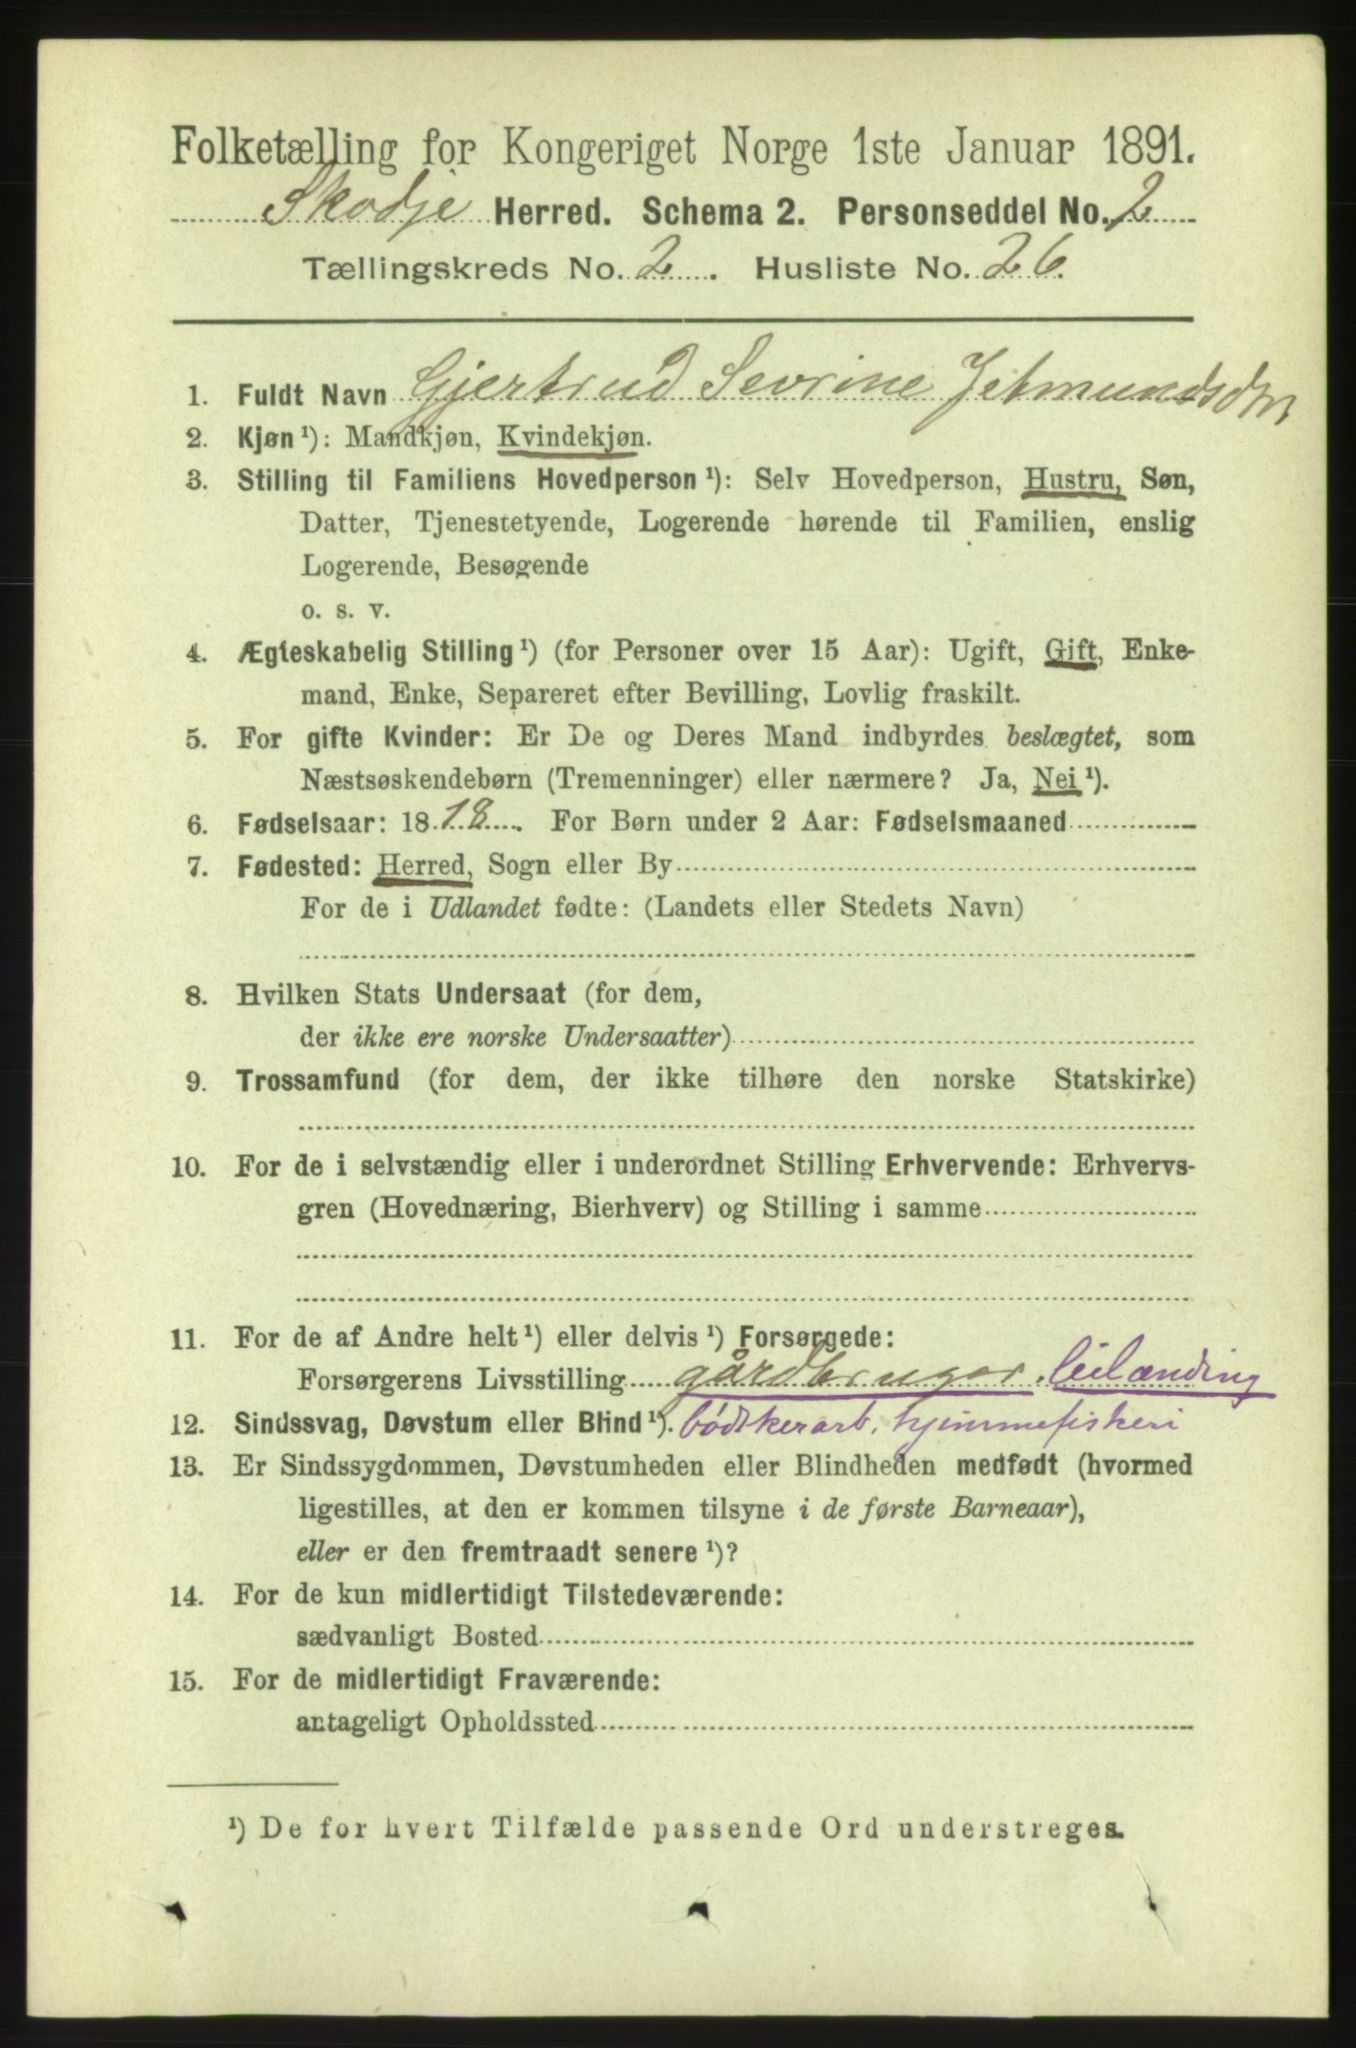 Folketælling for Kongeriget Norge 1ste Januar 1891.
Skodje Herred. Schema 2. Personseddel No. 2
Tællingskreds No. 2. Husliste No. 26.
1. Fuldt Navn Gjertrud Sevrine Jetmundsdtr
2. Kjøn ¹): Mandkjøn, Kvindekjøn.
3. Stilling til Familiens Hovedperson ¹): Selv Hovedperson, Hustru, Søn,
Datter, Tjenestetyende, Logerende hørende til Familien, enslig
Logerende, Besøgende
o. s. v.
4. Ægteskabelig Stilling ¹) (for Personer over 15 Aar): Ugift, Gift, Enke-
mand, Enke, Separeret efter Bevilling, Lovlig fraskilt.
5. For gifte Kvinder: Er De og Deres Mand indbyrdes beslægtet, som
Næstsøskendebørn (Tremenninger) eller nærmere? Ja, Nei ¹).
6. Fødselsaar: 1818. For Børn under 2 Aar: Fødselsmaaned
7. Fødested: Herred, Sogn eller By
For de i Udlandet fødte: (Landets eller Stedets Navn)
8. Hvilken Stats Undersaat (for dem,
der ikke ere norske Undersaatter)
9. Trossamfund (for dem, der ikke tilhøre den norske Statskirke)
10. For de i selvstændig eller i underordnet Stilling Erhvervende: Erhvervs-
gren (Hovednæring, Bierhverv) og Stilling i samme
11. For de af Andre helt ¹) eller delvis ¹) Forsørgede:
Forsørgerens Livsstilling gårdbruger. leilænding
12. Sindssvag, Døvstum eller Blind ¹). bødkerarb. hjemmefiskeri
13. Er Sindssygdommen, Døvstumheden eller Blindheden medfødt (hvormed
ligestilles, at den er kommen tilsyne i de første Barneaar),
eller er den fremtraadt senere ¹)?
14. For de kun midlertidigt Tilstedeværende:
sædvanligt Bosted
15. For de midlertidigt Fraværende:
antageligt Opholdssted
¹) De for hvert Tilfælde passende Ord understreges.